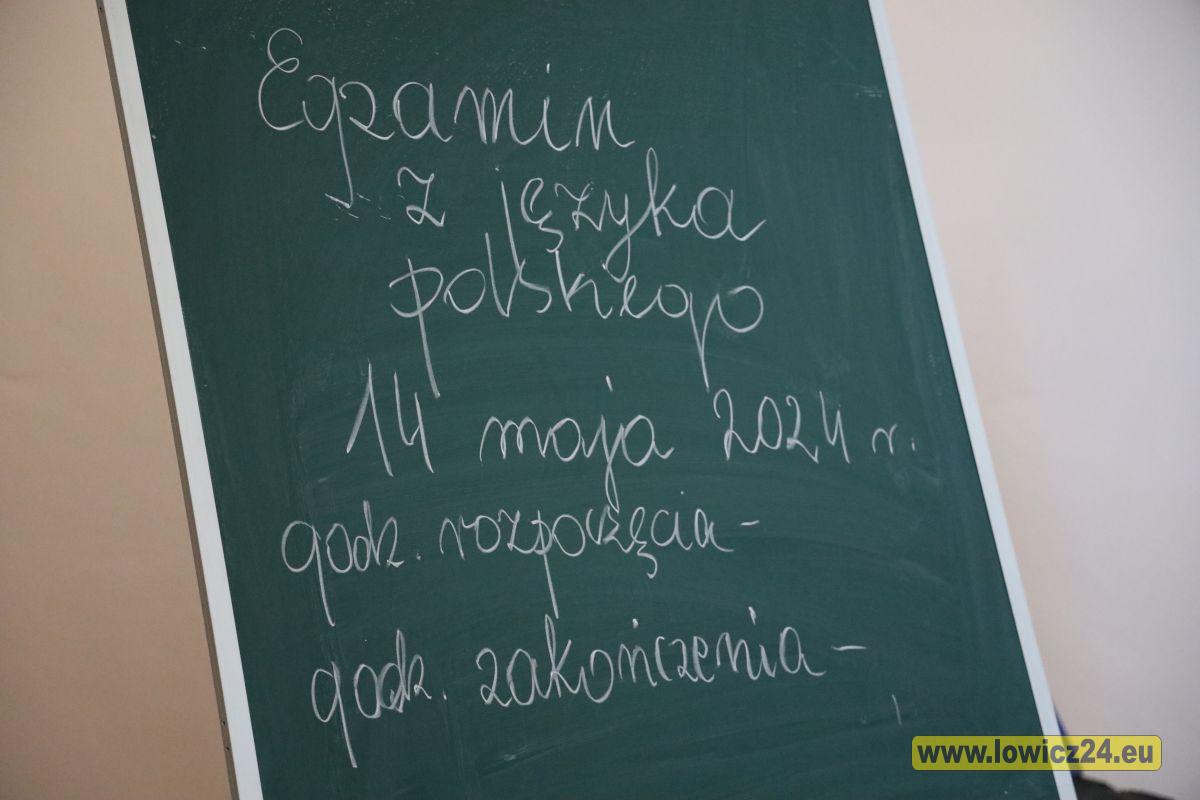 Egzamin
z języka
polskiego
14 maja 2024 r.
godz. rozpoczęcia -
godz. zakończenia -
www.lowicz24.eu